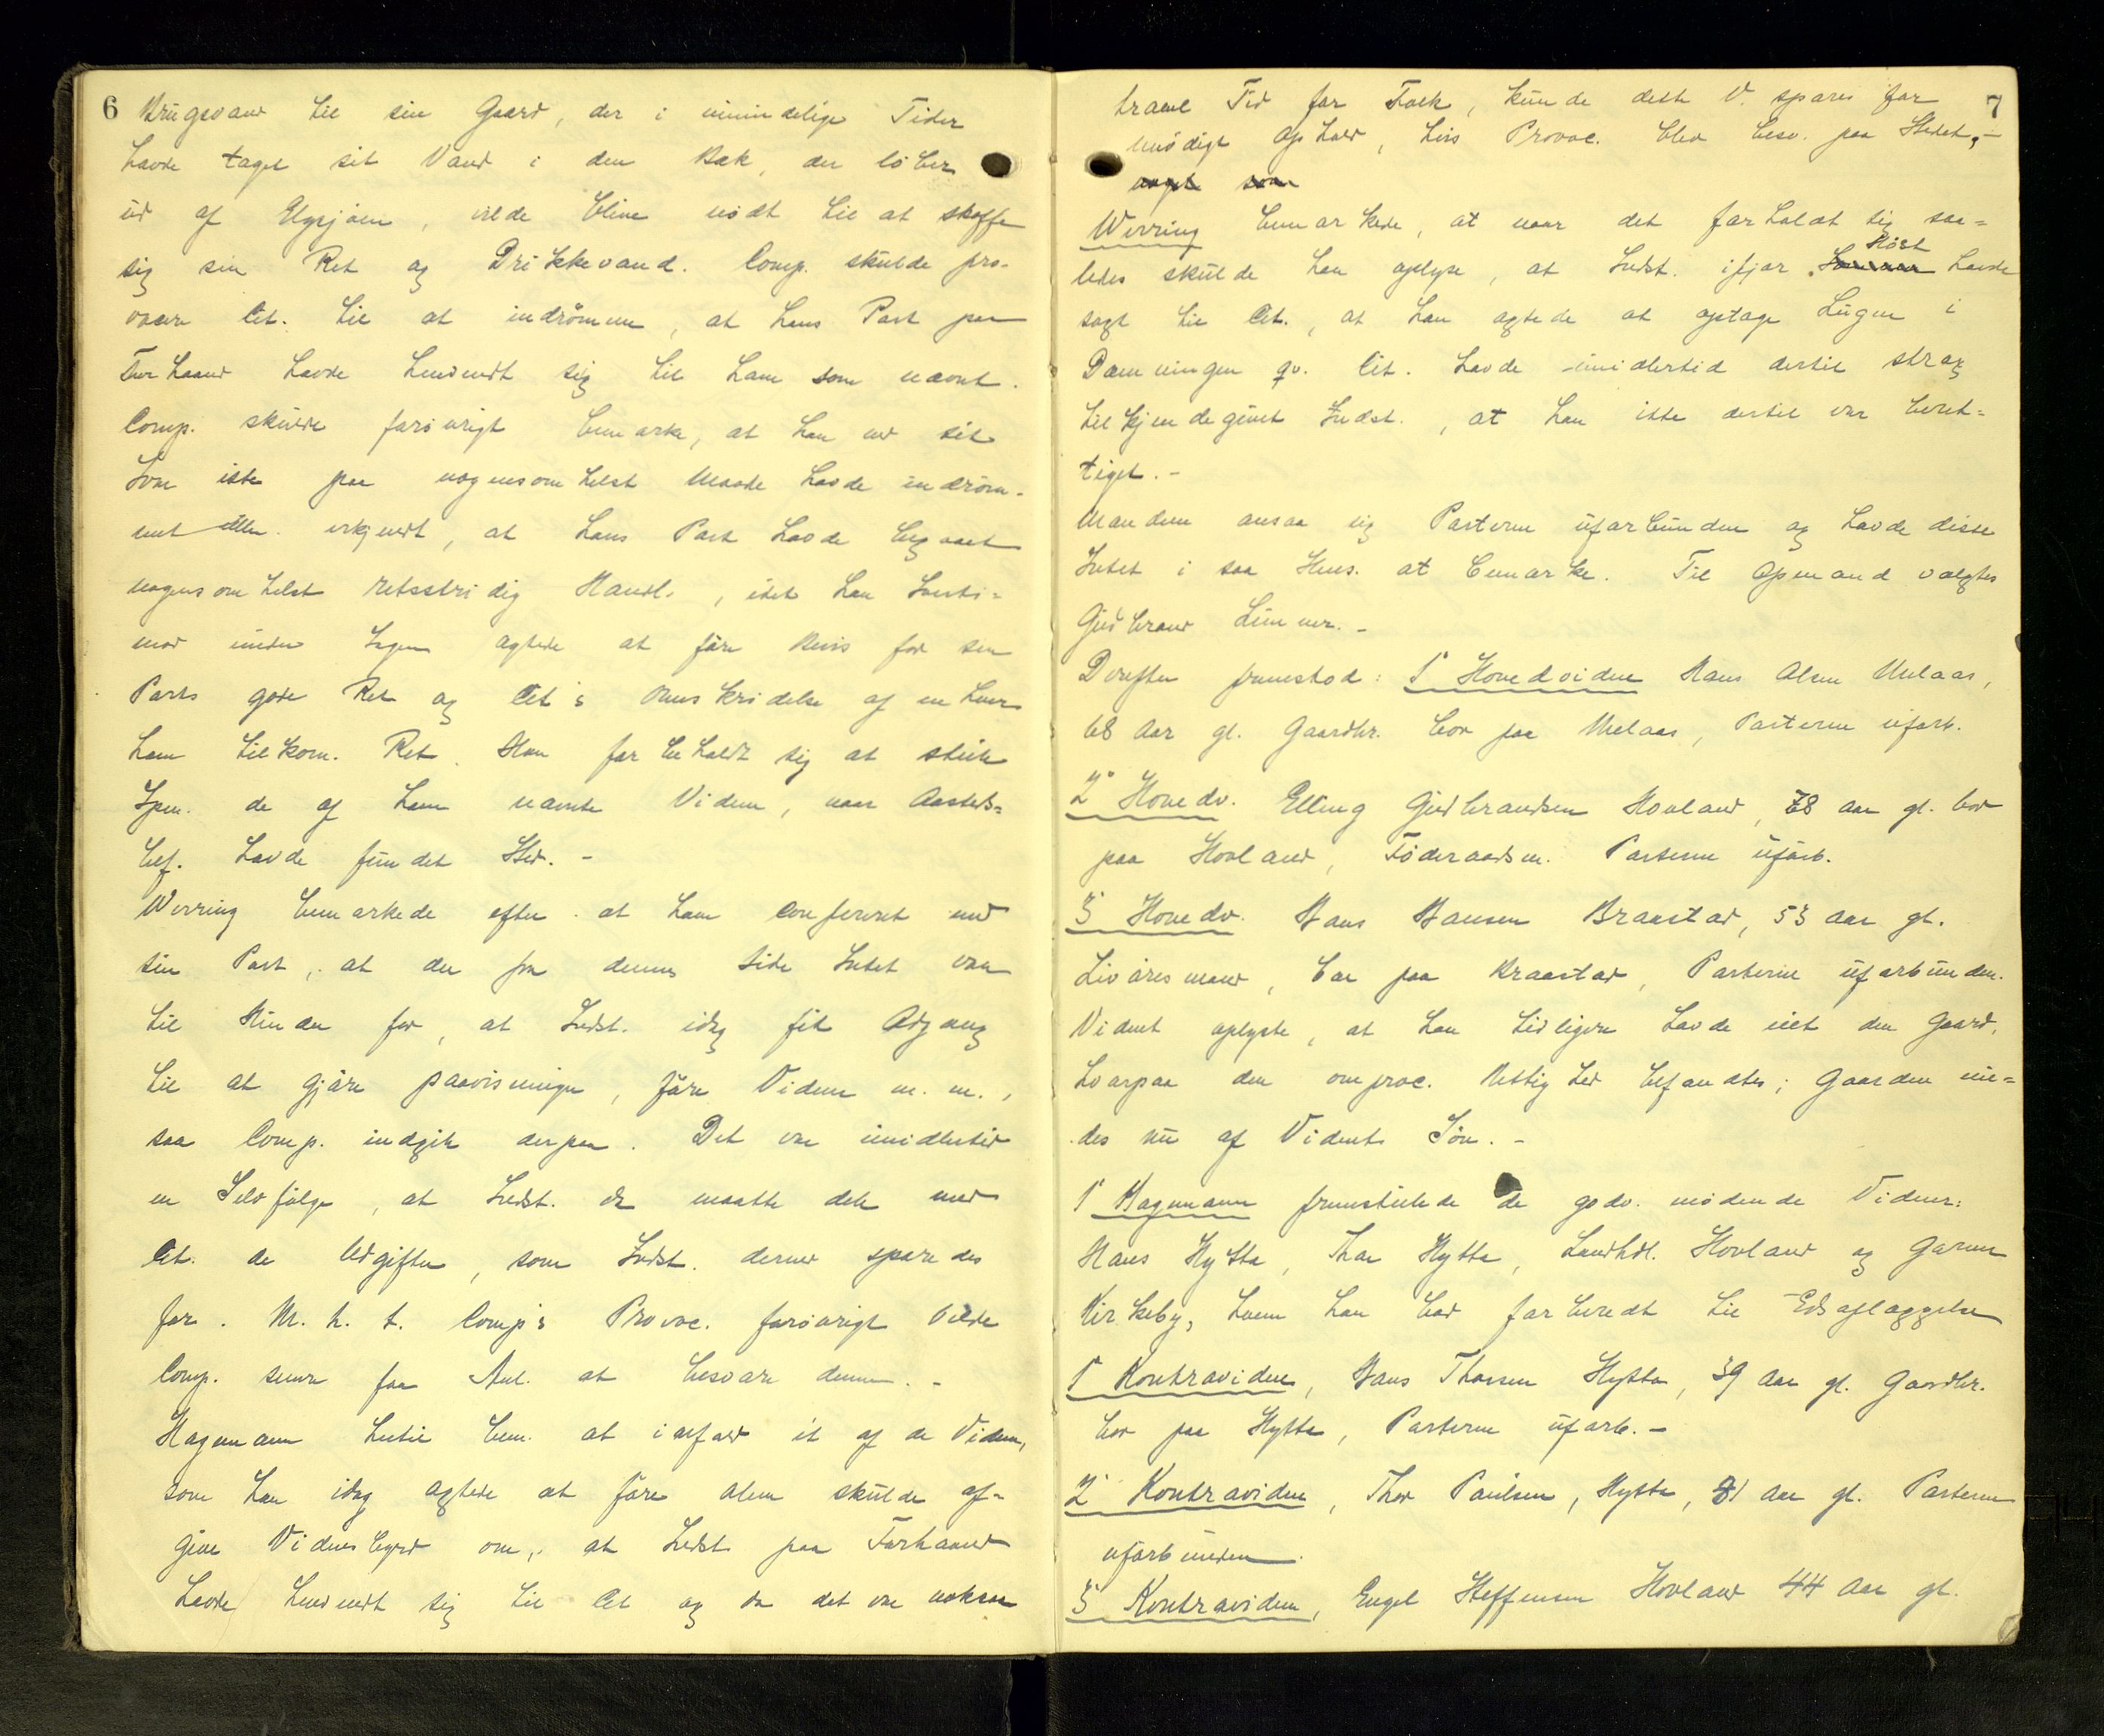 6
Brugsvand til sin Gaard, der i umindelige Tider
havde taget sit Vand i den Bæk, der löber
ud af Elgsjöen, vilde blive nödt til at skaffe
sig sin Ret og Drikkevand. Comp. skulde pro-
vocere Cit. til at indrömme, at hans Part paa
Forhaand havde henvendt sig til ham som nævnt.
Comp. skulde forövrigt bemærke, at han ved sit
Svar ikke paa nogensomhelst Maade havde indröm-
met eller erkjendt, at hans Part havde begaaet
nogensomhelst retsstridig Handl., idet han tverti-
mod under Sagen agtede at före Bevis for sin
Parts gode Ret og Cit's Overskridelse af enhver
ham tilkom. Ret. Han forbeholdt sig at stille
Spm. de af ham nævnte Vidner, naar Aasteds-
bef. havde fundet Sted. -
Werring bemærkede efter at have confereret med
sin Part, at der fra dennes Side Intet var
til Hinder for, at Indst. idag fik Adgang
til at gjöre Paavisninger, före Vidner m. m.,
saa Comp. indgik derpaa. Det var imidlertid
en Selvfölge, at Indst. da maatte dele med
Cit. de Udgifter, som Indst. derved sparedes
for. M. h. t. Comp's Provoc. forövrigt vilde
Comp. senere faa Anl. at besvare denne. -
Hagmann hertil bem. at iafald et af de Vidner,
som han idag agtede at före alene skulde af-
give Vidnesbyrd om, at Indst. paa Forhaand
havde henvendt sig til Cit og da det var noksaa
7
travel Tid for Folk, kunde dette V. spares for
unödigt Ophold, hvis Provoc. blev besv. paa Stedet, -
Werring bemærkede, at naar det forholdt sig saa-
ledes skulde han oplyse, at Indst. ifjor Höst havde
sagt til Cit., at han agtede at optage Lugen i
Dæmningen qv. Cit. havde imidlertid dertil strax
tilkjendegivet Indst., at han ikke dertil var beret-
tiget. -
Mændene ansaa sig Parterne uforbundne og havde disse
Intet i saa Hens. at bemærke. Til Opmand valgtes
Gudbrand Lunner. -
Derefter fremstod: 1' Hovedvidne Hans Olsen Melaas,
68 Aar gl. Gaardbr. bor paa Melaas, Parterne uforb.
2' Hovedv. Elling Gudbrandsen Hovland, 78 Aar gl. bor
paa Hovland, Föderaadsm. Parterne uforb.
3' Hovedv. Hans Hansen Braastad, 53 Aar gl.
Livöresmand, bor paa Braastad, Parterne uforbunden.
Vidnet oplyste, at han tidligere havde eiet den Gaard,
hvorpaa den omproc. Rettighed befandtes; Gaarden eie-
des nu af Vidnets Sön. -
1' Hagmann fremstillede de godv. mödende Vidner:
Hans Hytta, Thor Hytta, Landhdl. Hovland og Garver
Kirkeby, hvem han bad forberedt til Edsaflæggelse
1' Kontravidne, Hans Thorsen Hytta, 39 Aar gl. Gaardbr.
bor paa Hytta, Parterne uforb. -
2' Kontravidne, Thor Paulsen, Hytta, 81 Aar gl. Parterne
uforbunden.
3' Kontravidne, Engel Steffensen Hovland 44 Aar gl.